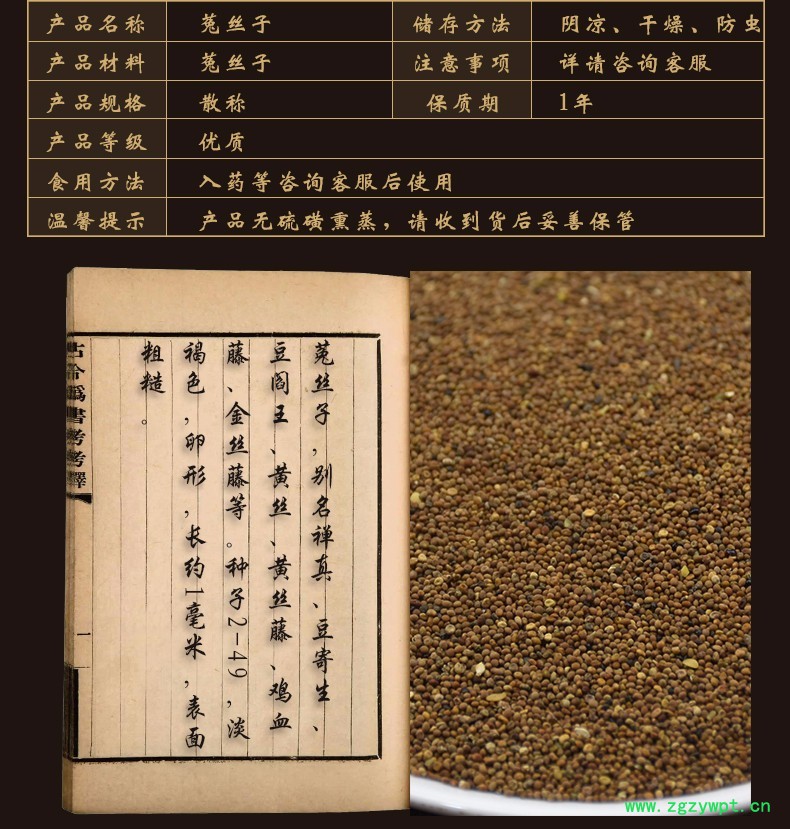 产品名称 菟丝子 储存方法 阴凉、干燥、防虫
产品材料 菟丝子 注意事项 详请咨询客服
产品规格 散称 保质期 1年
产品等级 优质
食用方法 入药等咨询客服后使用
温馨提示 产品无硫磺熏蒸，请收到货后妥善保管
菟丝子，别名禅真、豆寄生、
豆阎王、黄丝、黄丝藤、鸡血
藤、金丝藤等。种子2-49，淡
褐色，卵形，长约1毫米，表面
粗糙。
古今伪書考考釋
一
www.zgzywpt.cn